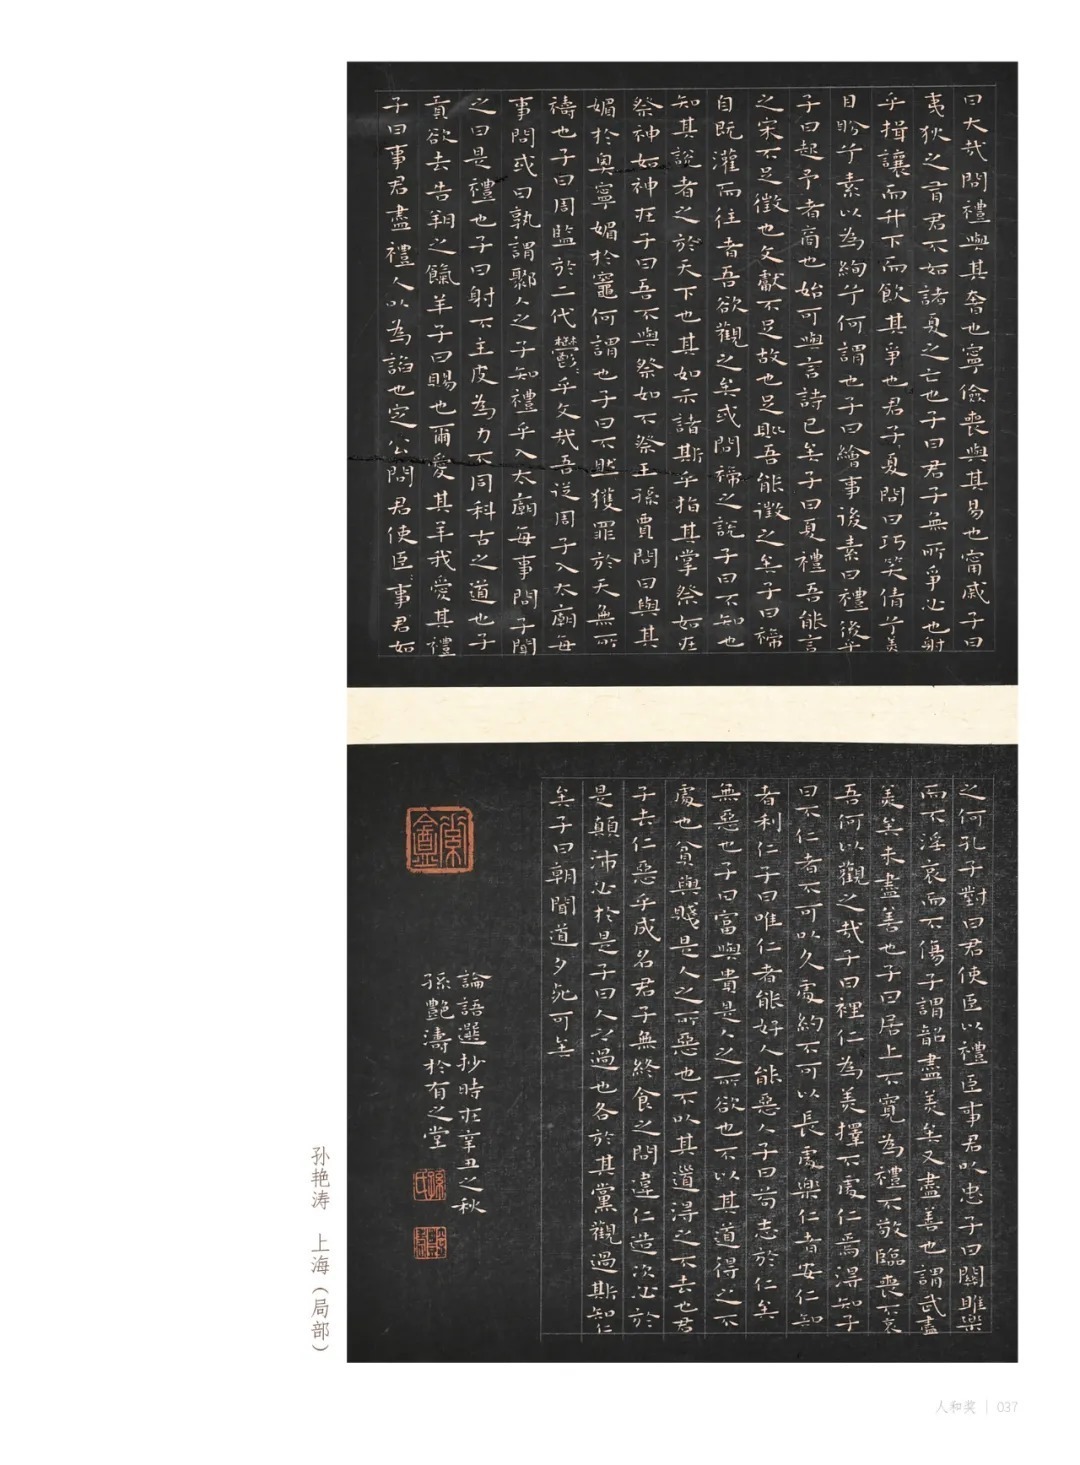 曰大哉問禮與其奢也寧儉喪與其易也甯戚子曰
夷狄之有君不如諸夏之亡也子曰君子無所爭必也射
乎揖讓而升下而飲其爭也君子夏問曰巧笑倩兮美
目盼兮素以為絢兮何謂也子曰繪事後素曰禮後乎
子曰起予者商也始可與言詩已矣子曰夏禮吾能言
之宋不足徵也文獻不足故也足則吾能徵之矣子曰禘
自既灌而往者吾欲觀之矣或問禘之說子曰不知也
知其說者之於天下也其如示諸斯乎指其掌祭如在
祭神如神在子曰吾不與祭如不祭王孫賈問曰與其
媚於奧寧媚於竈何謂也子曰不然獲罪於天無所
禱也子曰周監於二代鬱鬱乎文哉吾從周子入太廟每
事問或曰孰謂鄹人之子知禮乎入太廟每事問子聞
之曰是禮也子曰射不主皮為力不同科古之道也子
貢欲去告朔之餼羊子曰賜也爾愛其羊我愛其禮
子曰事君盡禮人以為諂也定公問君使臣事君如
之何孔子對曰君使臣以禮臣事君以忠子曰關雎樂
而不淫哀而不傷子謂韶盡美矣又盡善也謂武盡
美矣未盡善也子曰居上不寬為禮不敬臨喪不哀
吾何以觀之哉子曰裡仁為美擇不處仁焉得知子
曰不仁者不可以久處約不可以長處樂仁者安仁知
者利仁子曰唯仁者能好人能惡人子曰苟志於仁矣
無惡也子曰富與貴是人之所欲也不以其道得之不
處也貧與賤是人之所惡也不以其道得之不去也君
子去仁惡乎成名君子無終食之間違仁造次必於
是顛沛必於是子曰人之過也各於其黨觀過斯知仁
矣子曰朝聞道夕死可矣
論語選抄時在辛丑之秋
孫艷濤於有之堂
孙艳涛 上海（局部）
人和奖 | 037